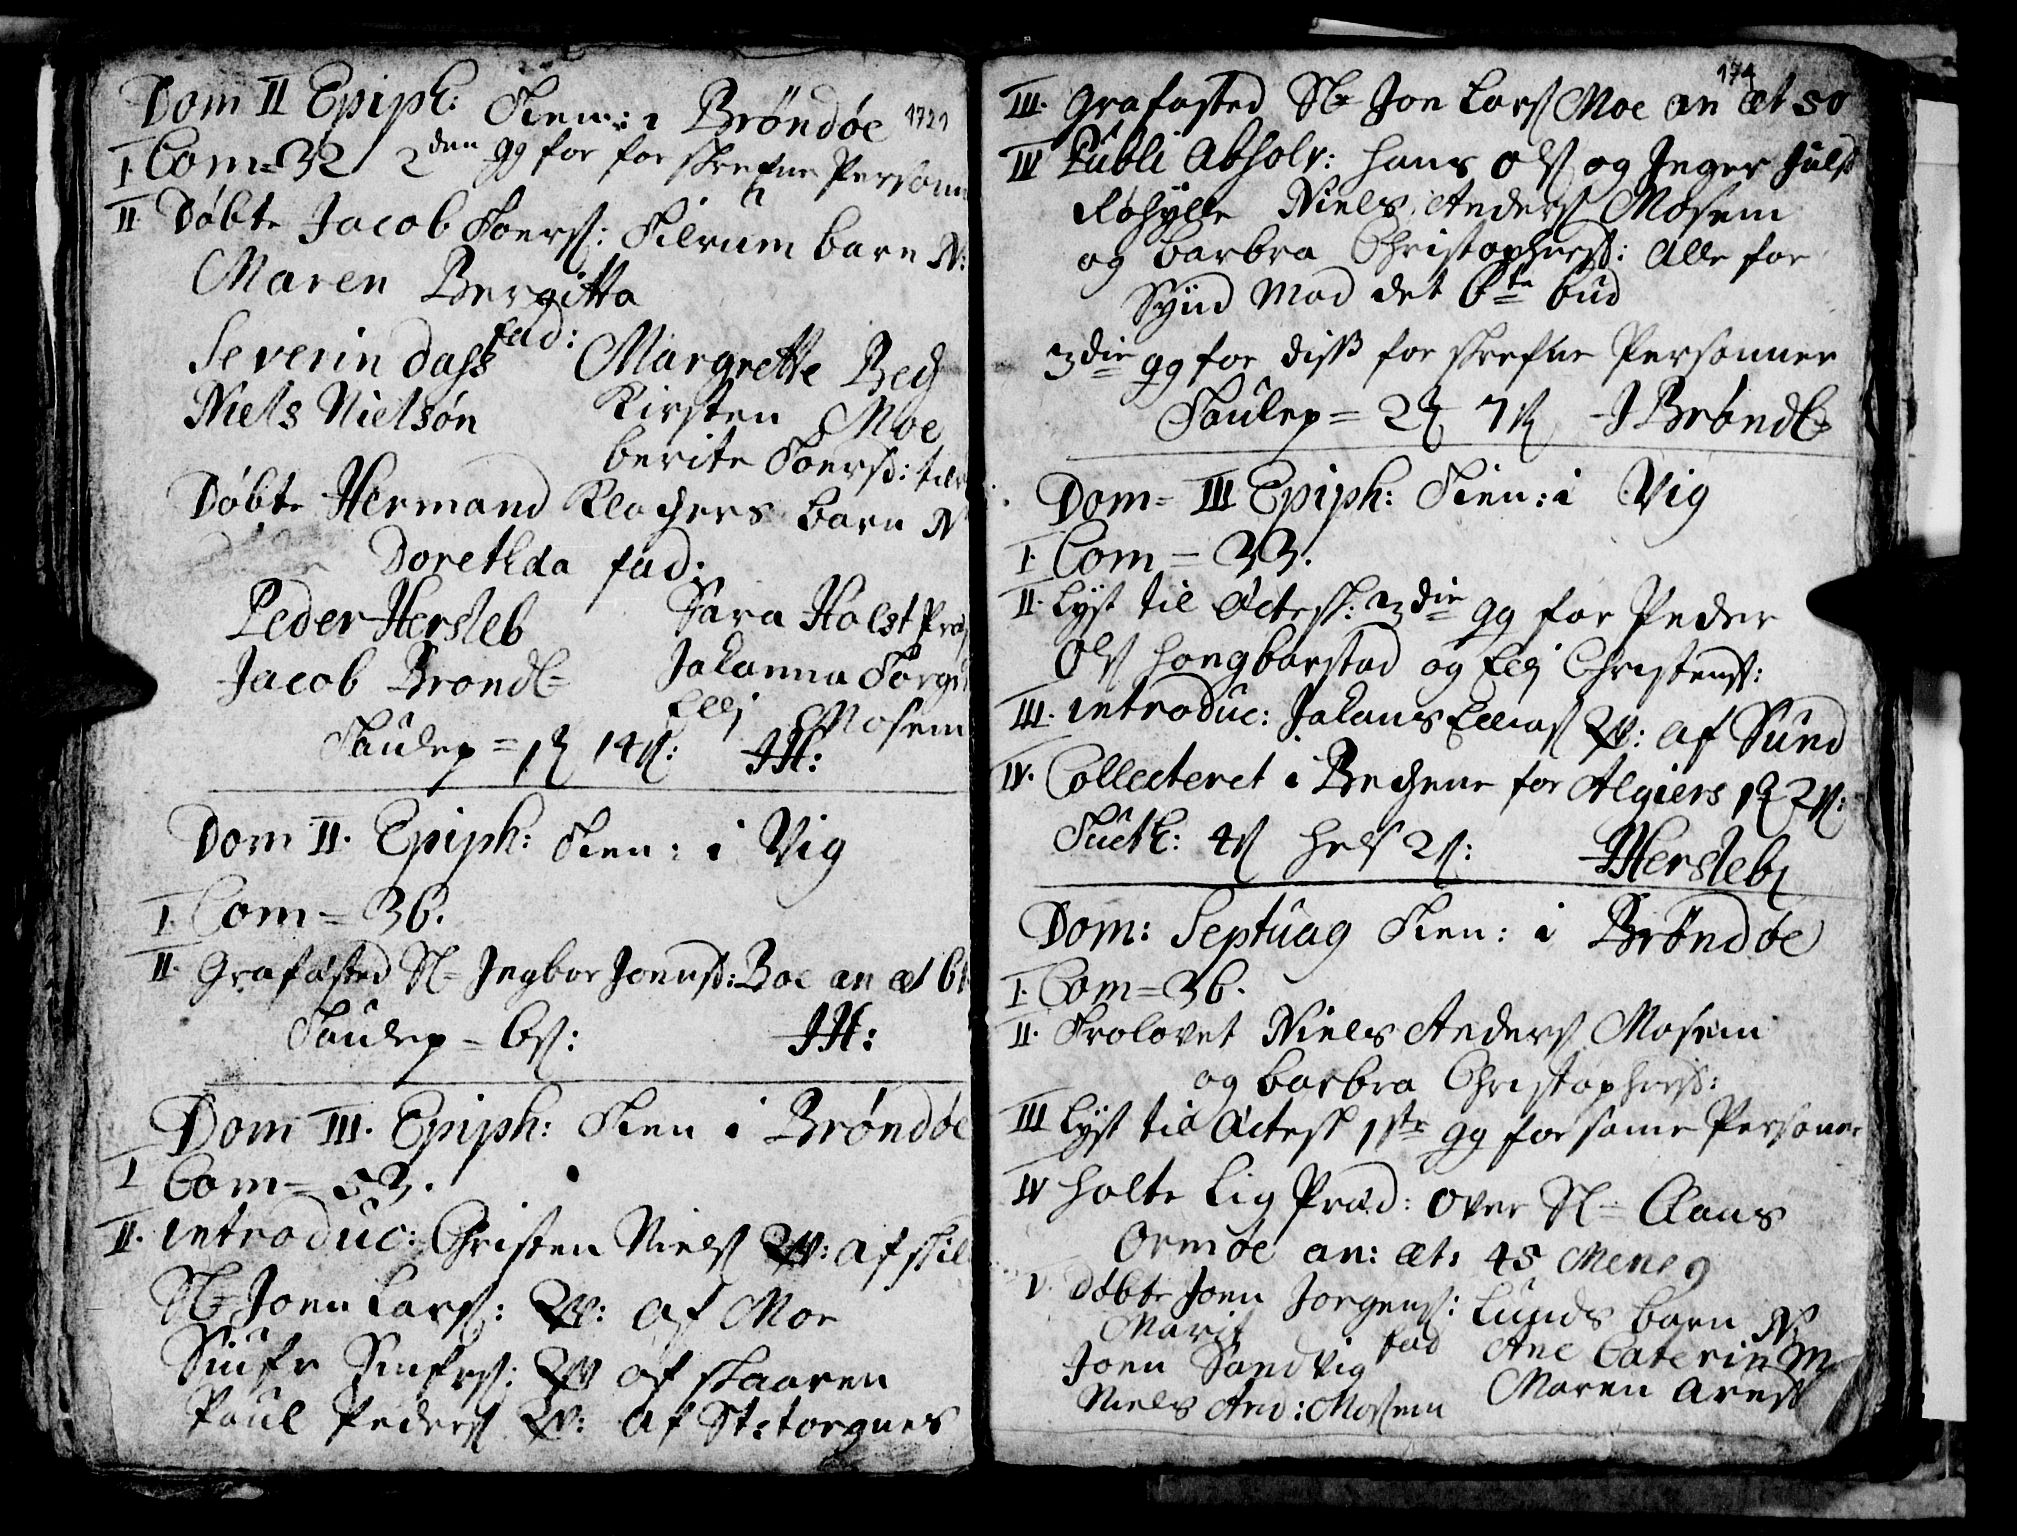 Dom II Epiph: Tien: i Brøndøe 1721
I. Com = 32 2den gg for for skrefne Personer
II. Døbte Jacob Toersen: Tilrum barn N:
Maren Bergitta
fad:
Severin dass Margrette Bech
Niels Nielsøn Kirsten Moe
berite Toersd: tilr
Døbte Hermand Klochers barn N
Dorethda fad:
Peder Hersleb Sara Holst
Jacob Brøndl= Johanna
Ellj Mosem
Taulep = 1 14ß: JH:
Dom II. Epiph: Tien: i Vig
I. Com = 36.
II. Grafæsted Sl= Ingbor Jensd: Boe an æt
Taulep = 6ß: JH:
Dom III. Epiph: Tien i Brøndøe
I Com = 53.
II. introduc: Christen Niels: af
Sl= Joen Lars: af Moe
Siufr Siufrs: af skaaren
Paul Peders af St: torgnes
174
III. Grafæsted Sl= Jon Lars Moe an æt 50
IV Publi Absolv: hans Ols og Inger
Niels Anders Mosem
og barbra Christophersd: Alle for
Synd Mod det 6te bud
3die gg for diss for skrefne Personner
Taulep = 2 7ß J Brøndl=
Dom= III Epiph: Tien: i Vig
I. Com = 33.
II. Lyst til Ectesk: 3die gg for Peder
Ols hongbarstad og Ellj Christensd:
III. introduc: Johans Ellias: af Sund
IV. Collecteret i Bechene for Algiers 1 2ß:
Tucth: 4ß hos 2ß: JHersleb
Dom: Septuag Tien: i Brøndøe
I. Com = 36.
II. Trolovet Niels Anders Mosem
og barbra Christophersd:
III Lyst til Ectesk 1ste gg for same Personer
IV holte Lig Præd: over Sl= Claus
Ormøe an: æt: 45 Mene 9
V. døbte Joen Jorgens: Lunds barn N:
Marit fad Ane Caterin M
Joen Sandvig Maren Arnsd
Niels And: Mossem